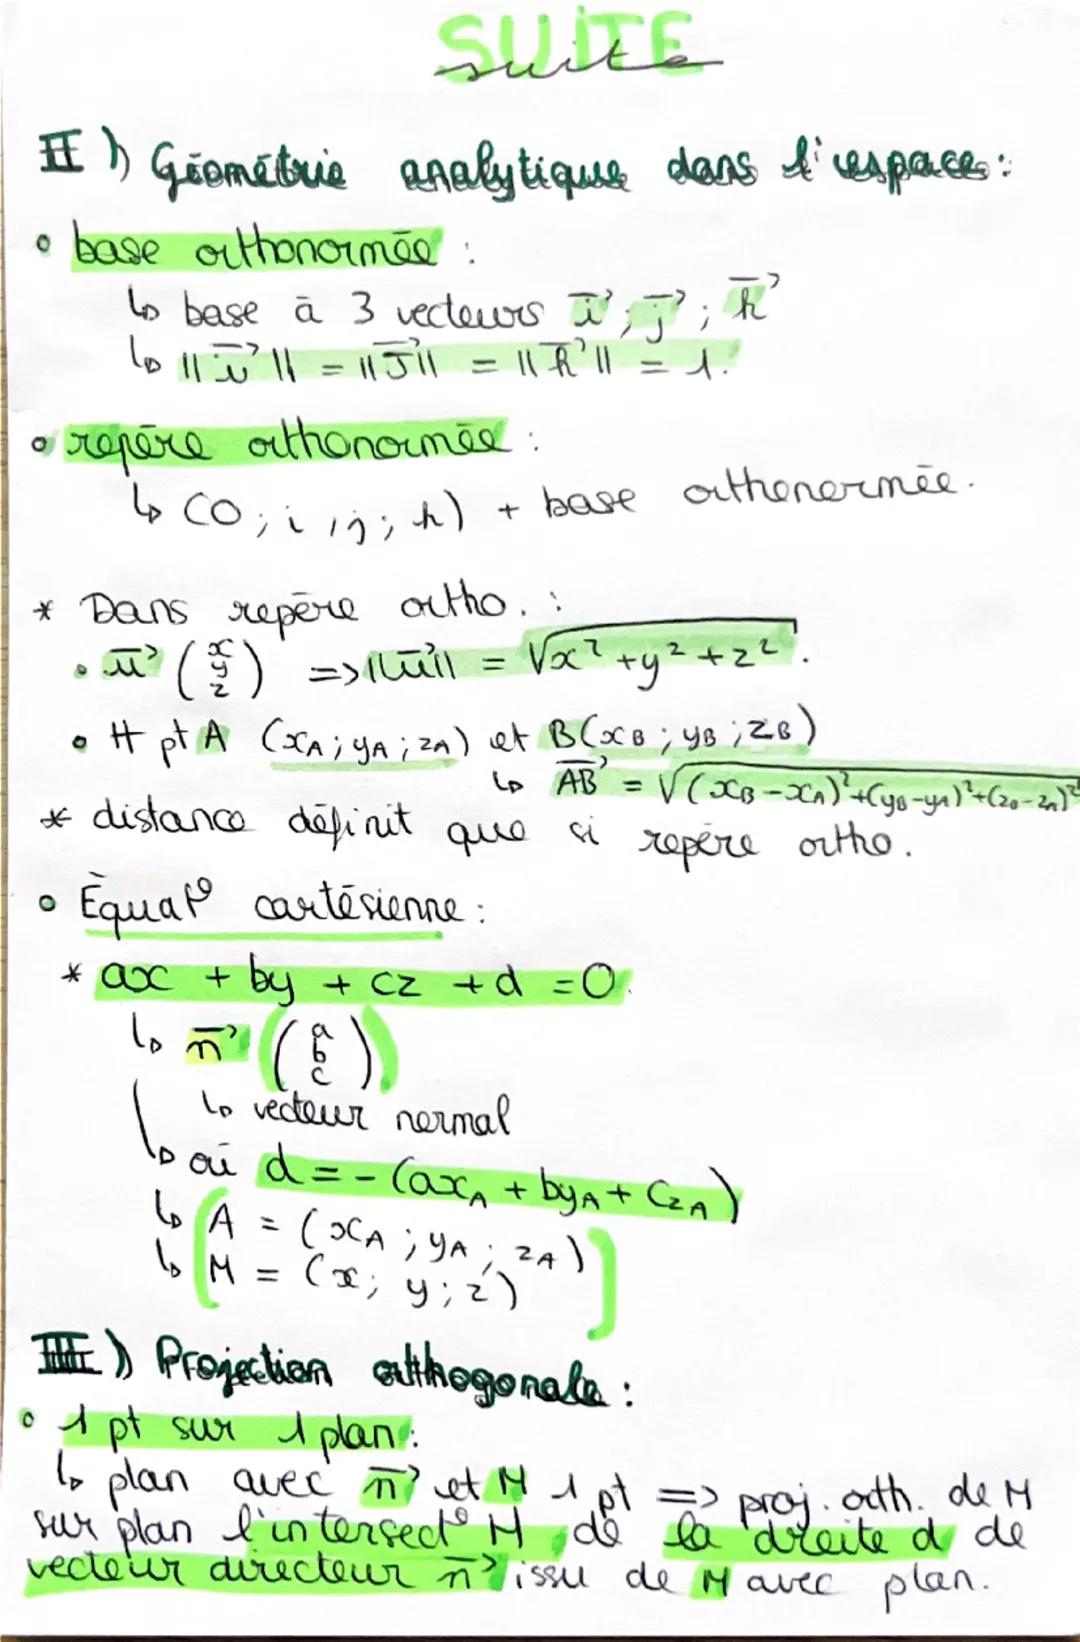 SUITE
suite
II) Géométrie analytique dans l'espace :
• base orthonormée :
↳ base à 3 vecteurs i⃗ ; j⃗ ; k⃗
↳ ||i⃗|| = ||j⃗|| = ||k⃗|| = 1.
• repère orthonormée :
↳ (O ; i ; j ; k) + base orthonormée.
* Dans repère ortho. :
• u⃗ (x y z) => ||u⃗|| = √x² + y² + z² .
• pt A (xA ; yA ; zA) et B(xB ; yB ; zB)
↳ AB⃗ = √(xB - xA)² + (yB - yA)² + (zB - zA)²
* distance définit que si repère ortho.
• Équat° cartésienne :
* ax + by + cz + d = 0.
↳ n⃗ (a b c)
↳ vecteur normal
↳ où d = - (axA + byA + czA)
↳ A = (xA ; yA ; zA)
↳ M = (x ; y ; z)
III) Projection orthogonale :
• 1 pt sur 1 plan :
↳ plan avec n⃗ et M 1 pt => proj. orth. de M
sur plan l'intersect° H de la droite d de
vecteur directeur n⃗ issu de M avec plan.